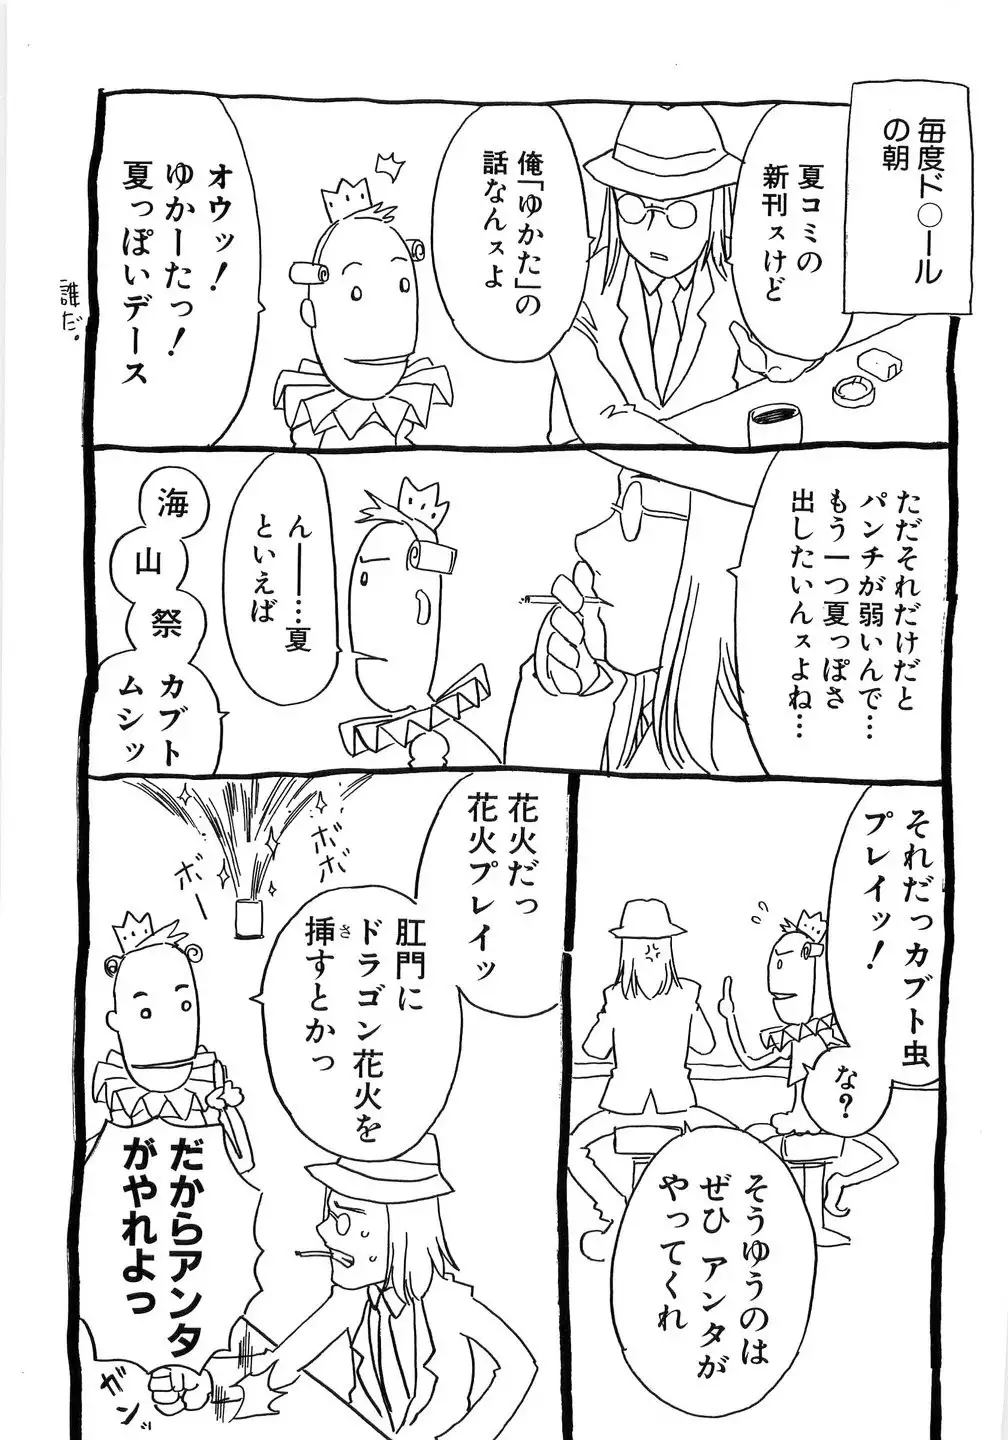 毎度ド○ール
の朝
夏コミの
新刊スけど
俺「ゆかた」の
話なんスよ
オウッ!
ゆかーたっ!
夏っぽいデース
誰だ。
ただそれだけだと
パンチが弱いんで…
もう一つ夏っぽさ
出したいんスよね…
んー…夏
といえば
海
山
祭
カブト
ムシッ
それだっカブト虫
プレイッ!
な?
そうゆうのは
ぜひ アンタが
やってくれ
花火だっ
花火プレイッ
肛門に
ドラゴン花火を
挿すとかっ
さ
ボボボ
ボー
だからアンタ
がやれよっ
ガンッ